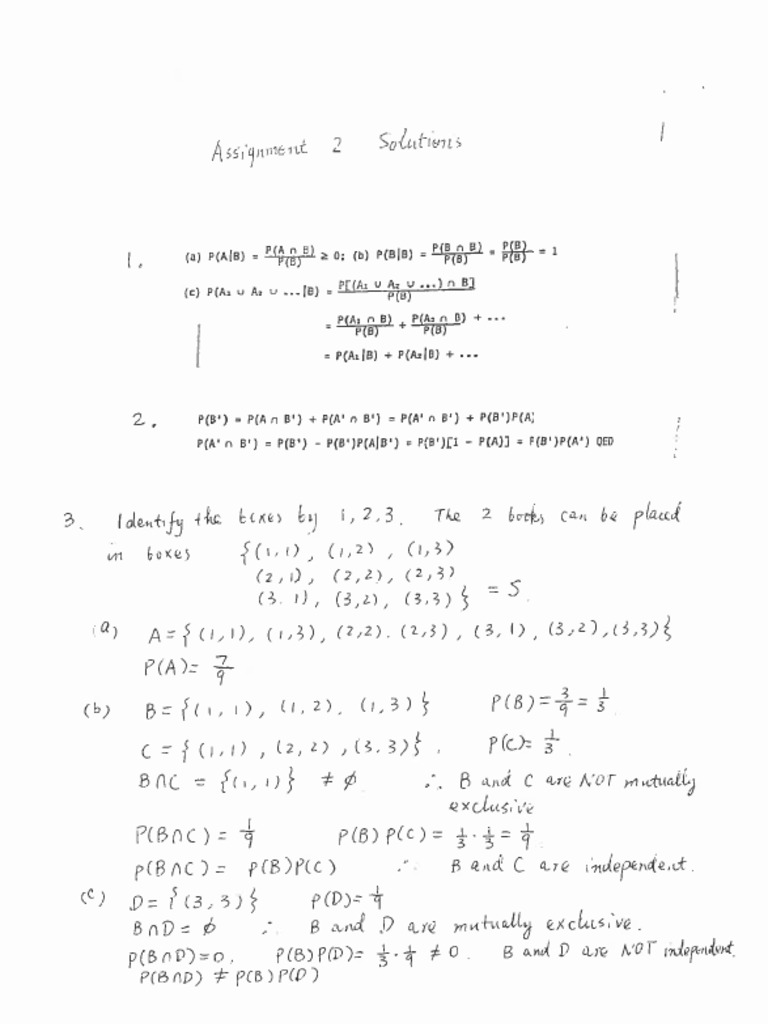 Assignment 2 Solutions
1
1. (a) P(A|B) = P(A ∩ B)/P(B) ≥ 0; (b) P(B|B) = P(B ∩ B)/P(B) = P(B)/P(B) = 1
(c) P(A₁ ∪ A₂ ∪ ...|B) = P[(A₁ ∪ A₂ ∪ ...) ∩ B]/P(B)
= P(A₁ ∩ B)/P(B) + P(A₂ ∩ B)/P(B) + ...
= P(A₁|B) + P(A₂|B) + ...
2. P(B') = P(A ∩ B') + P(A' ∩ B') = P(A' ∩ B') + P(B')P(A)
P(A' ∩ B') = P(B') - P(B')P(A|B') = P(B')[1 - P(A)] = P(B')P(A') QED
3. Identify the boxes by 1, 2, 3. The 2 books can be placed
in boxes {(1,1), (1,2), (1,3)
(2,1), (2,2), (2,3)
(3,1), (3,2), (3,3)} = S.
(a) A = {(1,1), (1,3), (2,2), (2,3), (3,1), (3,2), (3,3)}
P(A) = 7/9
(b) B = {(1,1), (1,2), (1,3)} P(B) = 3/9 = 1/3
C = {(1,1), (2,2), (3,3)}. P(C) = 1/3.
B∩C = {(1,1)} ≠ ∅ ∴ B and C are NOT mutually
exclusive
P(B∩C) = 1/9 P(B) P(C) = 1/3 · 1/3 = 1/9.
P(B∩C) = P(B)P(C) ∴ B and C are independent.
(c) D = {(3,3)} P(D) = 1/9
B∩D = ∅ ∴ B and D are mutually exclusive.
P(B∩D) = 0, P(B)P(D) = 1/3 · 1/9 ≠ 0. B and D are NOT independent.
P(B∩D) ≠ P(B)P(D)